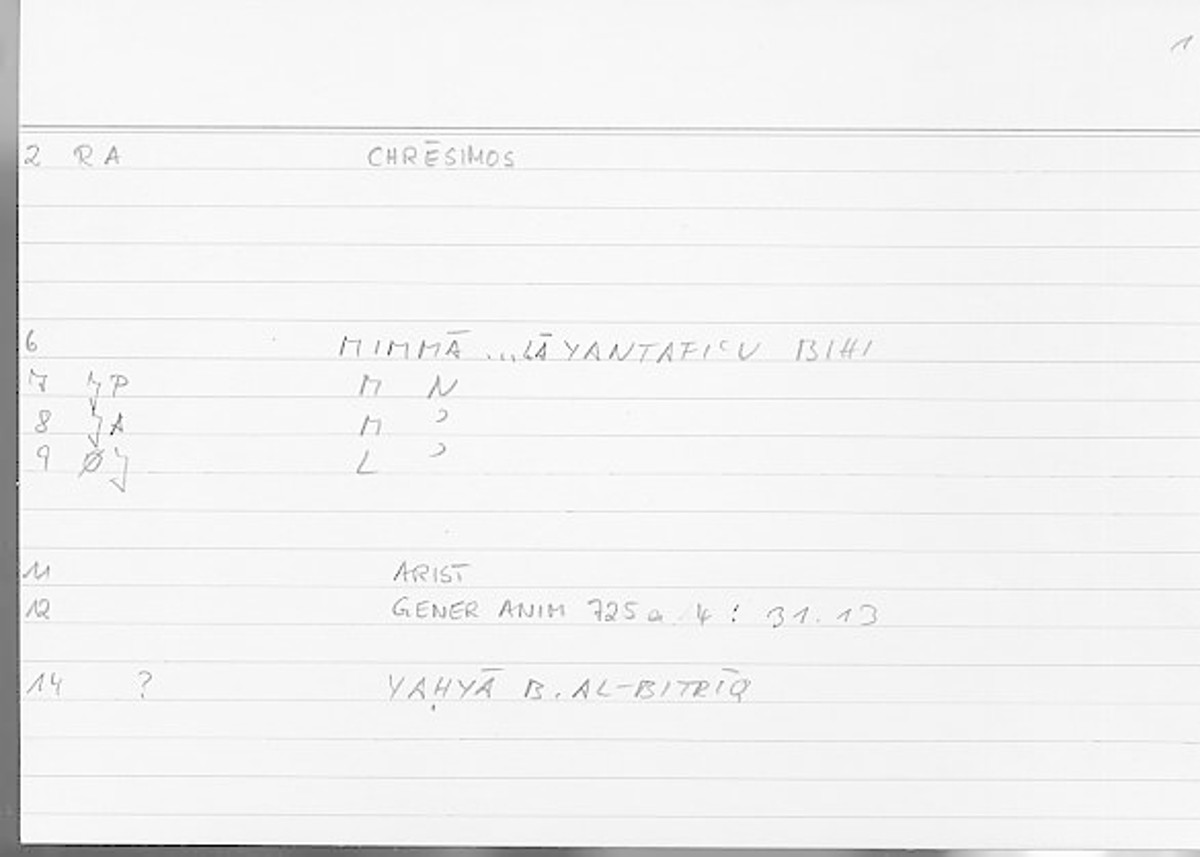 1
2 RA CHRĒSIMOS
6 MIMMĀ ...LĀ YANTAFIʿU BIHI
7 P M N
8 A M ʾ
9 Ø L ʾ
11 ARIST
12 GENER ANIM 725a 4 : 31.13
14 ? YAḤYĀ B. AL-BITRĪQ